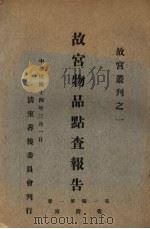 故宮叢刊之一
故宮物品點查報告
第一編第一冊
中華民國十四年三月一日
清室善後委員會刊行